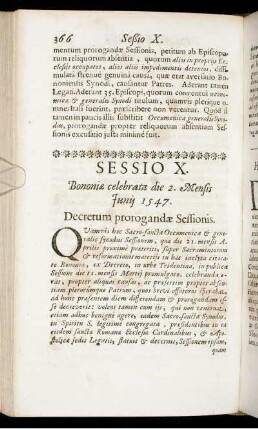 366 Sessio X.
mentum prorogandæ Sessionis, petitum ab Episcopo-
rum reliquorum absentia, quorum alios in propriis Ec-
clesiis occupatos, alios aliis impedimentis detentos, dissi-
mulata strenuè genuina causa, quæ erat aversatio Bo-
noniensis Synodi, causantur Patres. Aderant tamen
Legati. Aderant 35. Episcopi, quorum conventui œcu-
menicæ & generalis Synodi titulum, quamvis plerique o-
mnes Itali fuerint, præscribere non verentur. Quòd si
tamen in paucis illis subsistit Oecumenica generalis Syno-
dus, prorogandæ propter reliquorum absentiam Ses-
sionis excusatio justa minimè fuit.
SESSIO X.
Bononiæ celebrata die 2. Mensis
Junij 1547.
Decretum prorogandæ Sessionis.
QUamvis hæc Sacro-sancta Oecumenica & gene-
ralis Synodus Sessionem, quæ die 21. mensis A-
prilis proximi præteriti, super Sacramentorum
& reformationis materiis in hac inclyta civita-
te Bononiæ, ex Decreto, in urbe Tridentina, in publica
Sessione die 11. mensis Martij promulgato, celebranda e-
rat, propter aliquas causas, ac præsertim propter absen-
tiam plerorumque Patrum, quos brevi affuturos sperabat,
ad hunc præsentem diem differendam & prorogandam es-
se decreverit: volens tamen cum iis, qui non venerunt,
etiam adhuc benignè agere, eadem Sacro-sancta Synodus,
in Spiritu S. legitimè congregata, præsidentibus in ea
eisdem sanctæ Romanæ Ecclesiæ Cardinalibus, & Apo-
stolicæ sedis Legatis, statuit & decernit, Sessionem ipsam,
quam